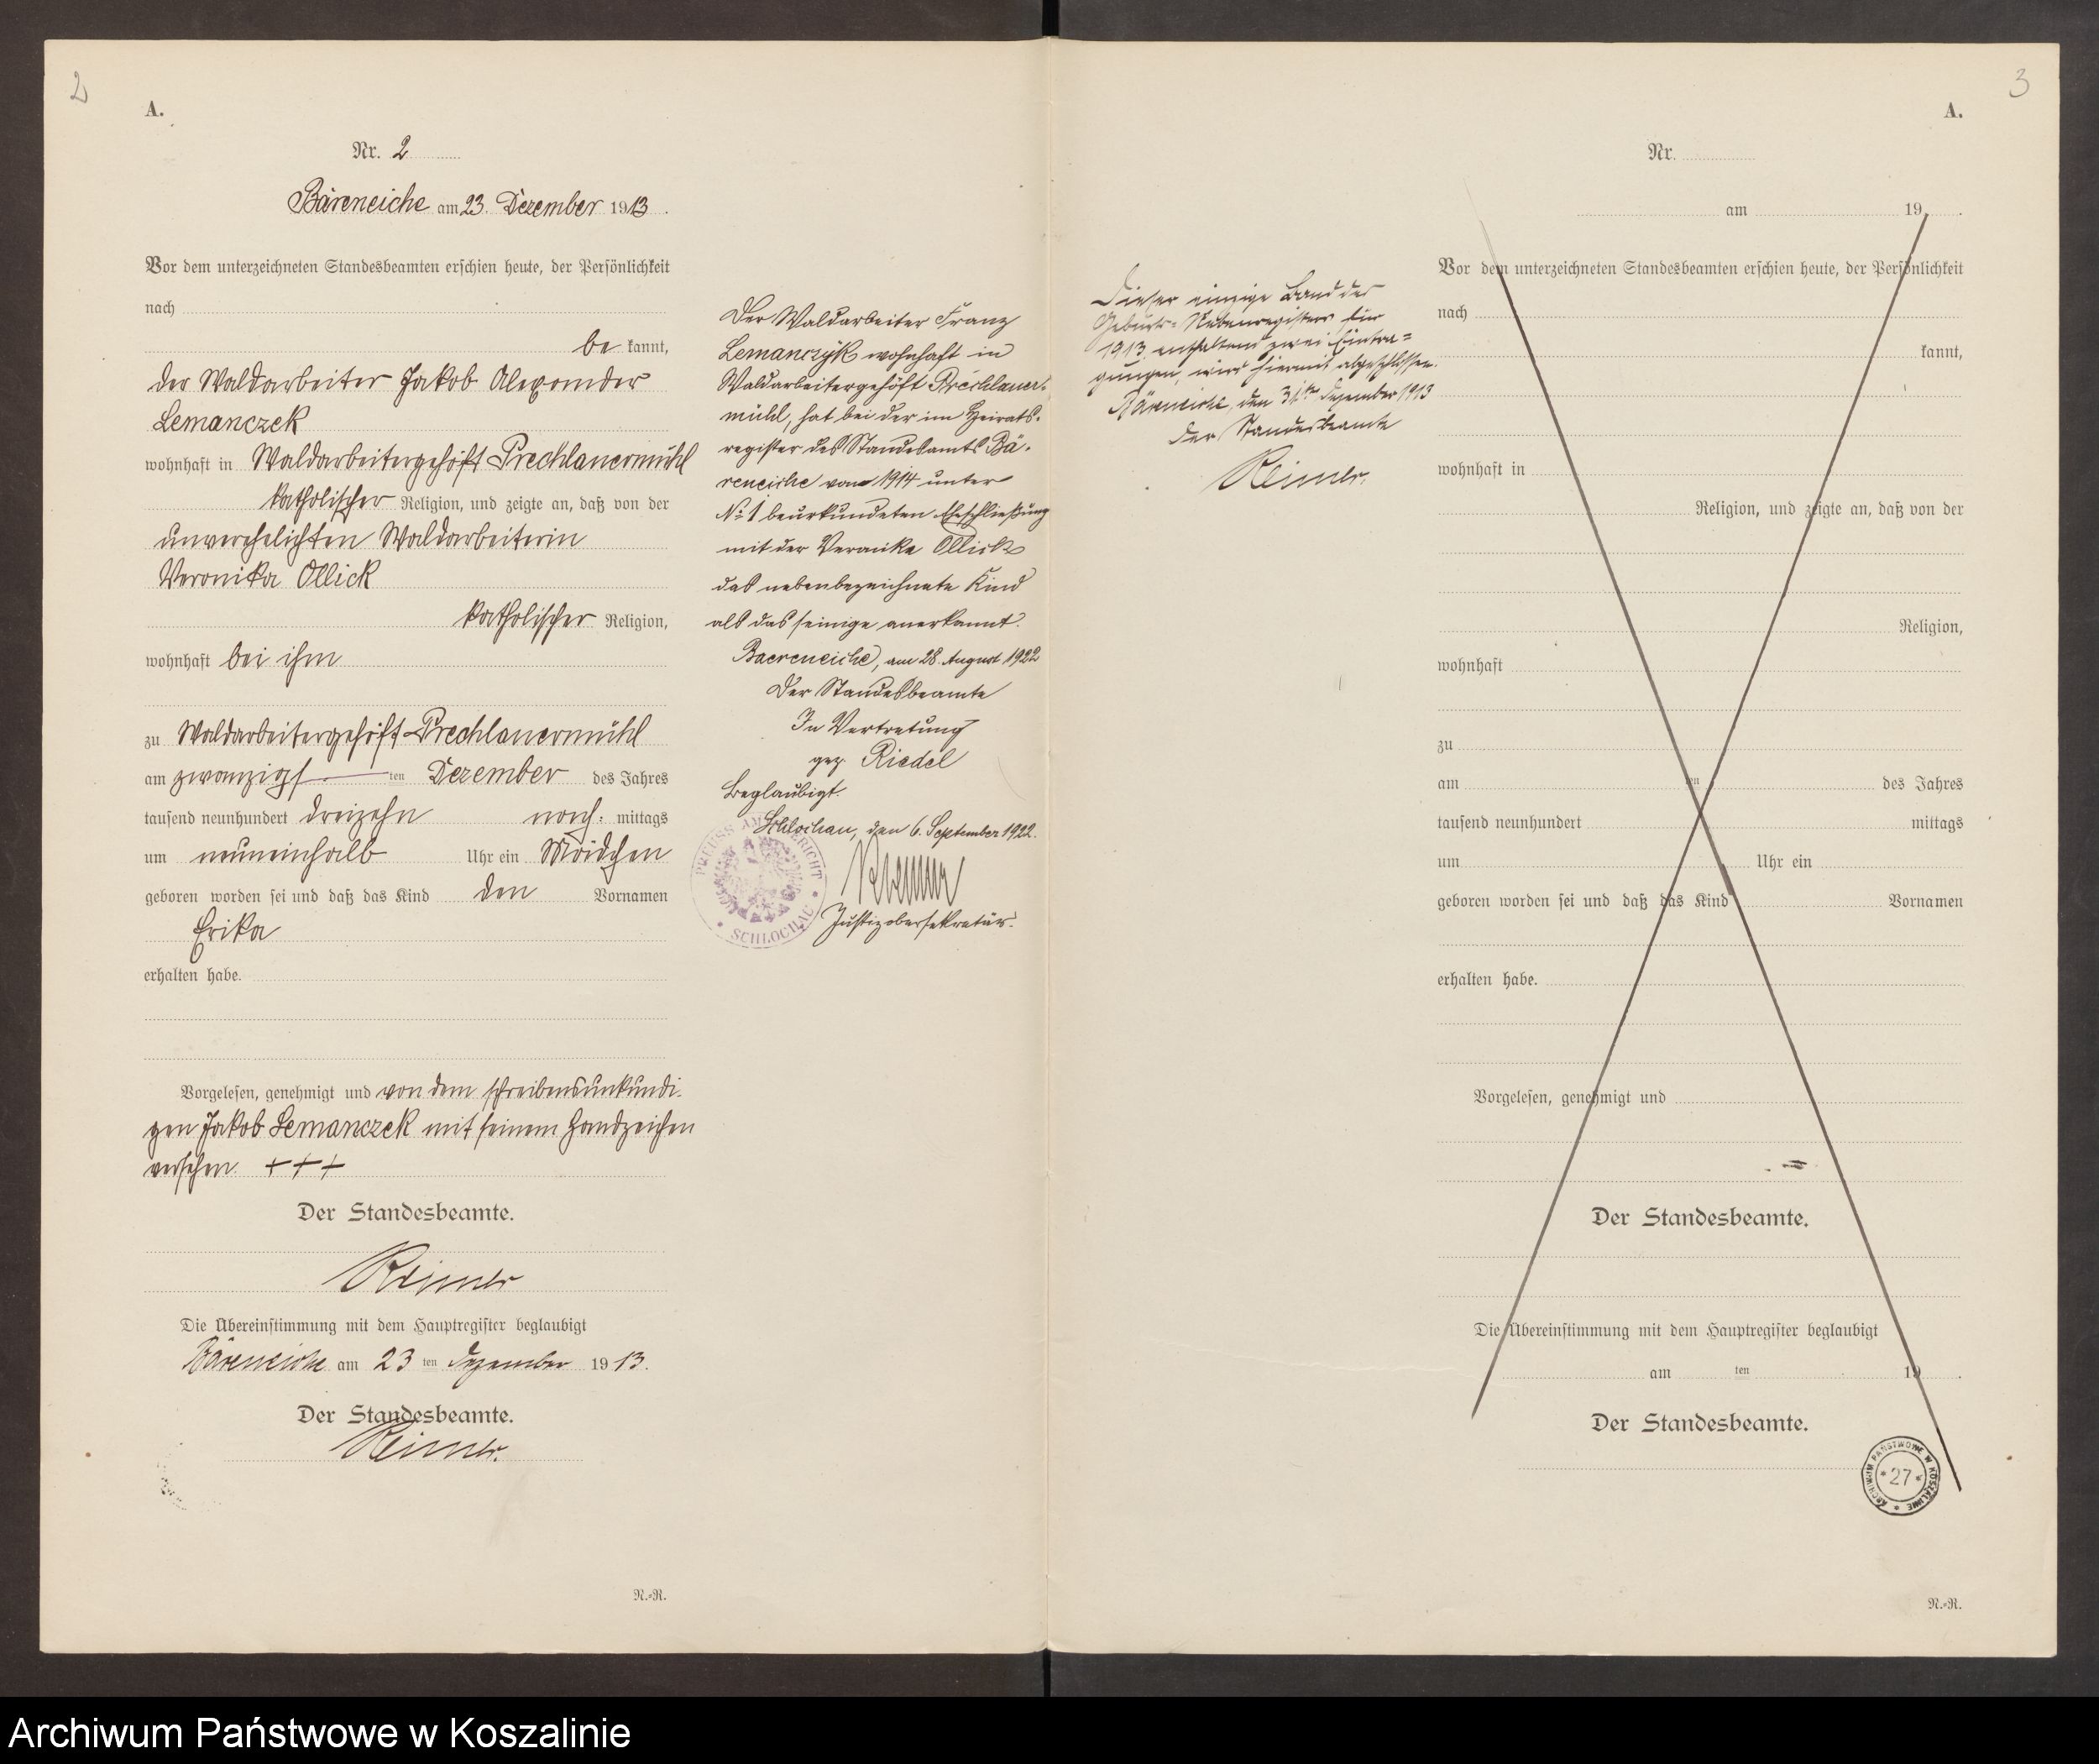 2
A.
Nr. 2
Bäreneiche am 23. Dezember 1913.
Vor dem unterzeichneten Standesbeamten erschien heute, der Persönlichkeit
nach
be kannt,
der Waldarbeiter Jakob Alexander
Lemanczek
wohnhaft in Waldarbeitergehöft Prechlauermühl
katholischer Religion, und zeigte an, daß von der
unverehelichten Waldarbeiterin
Veronika Ollick
katholischer Religion,
wohnhaft bei ihm
zu Waldarbeitergehöft Prechlauermühl
am zwanzigs ten Dezember des Jahres
tausend neunhundert dreizehn nach: mittags
um neuneinhalb Uhr ein Mädchen
geboren worden sei und daß das Kind den Vornamen
Erika
erhalten habe.
Vorgelesen, genehmigt und von dem schreibensunkundi-
gen Jakob Lemanczek mit seinem Handzeichen
versehen. +++
Der Standesbeamte.
Reimer
Die Übereinstimmung mit dem Hauptregister beglaubigt
Bäreneiche am 23 ten Dezember 1913.
Der Standesbeamte.
Reimer.
N.=R.
Der Waldarbeiter Franz
Lemanczyk wohnhaft in
Waldarbeitergehöft Prechlauer-
mühl, hat bei der im Heirats-
register des Standesamts Bä-
reneiche vom 1914 unter
No 1 beurkundeten Eheschließung
mit der Veronika Ollick
das nebenbezeichnete Kind
als das seinige anerkannt.
Baereneiche, am 28. August 1922
Der Standesbeamte
In Vertretung
gez. Riedel
Beglaubigt.
Schlochau, den 6. September 1922.
Justizobersekretär.
PREUSS. AMTSGERICHT
* SCHLOCHAU *
3
A.
Dieser einzige Band des
Geburts-Nebenregisters für
1913 enthaltend zwei Eintra=
gungen, wird hiermit abgeschlossen.
Bäreneiche, den 31ten Dezember 1913
Der Standesbeamte
Reimer.
Nr.
am 19 .
Vor dem unterzeichneten Standesbeamten erschien heute, der Persönlichkeit
nach
kannt,
wohnhaft in
Religion, und zeigte an, daß von der
Religion,
wohnhaft
zu
am ten des Jahres
tausend neunhundert mittags
um Uhr ein
geboren worden sei und daß das Kind Vornamen
erhalten habe.
Vorgelesen, genehmigt und
Der Standesbeamte.
Die Übereinstimmung mit dem Hauptregister beglaubigt
am ten 19 .
Der Standesbeamte.
ARCHIWUM PAŃSTWOWE W KOSZALINIE
* 27 *
N.=R.
Archiwum Państwowe w Koszalinie